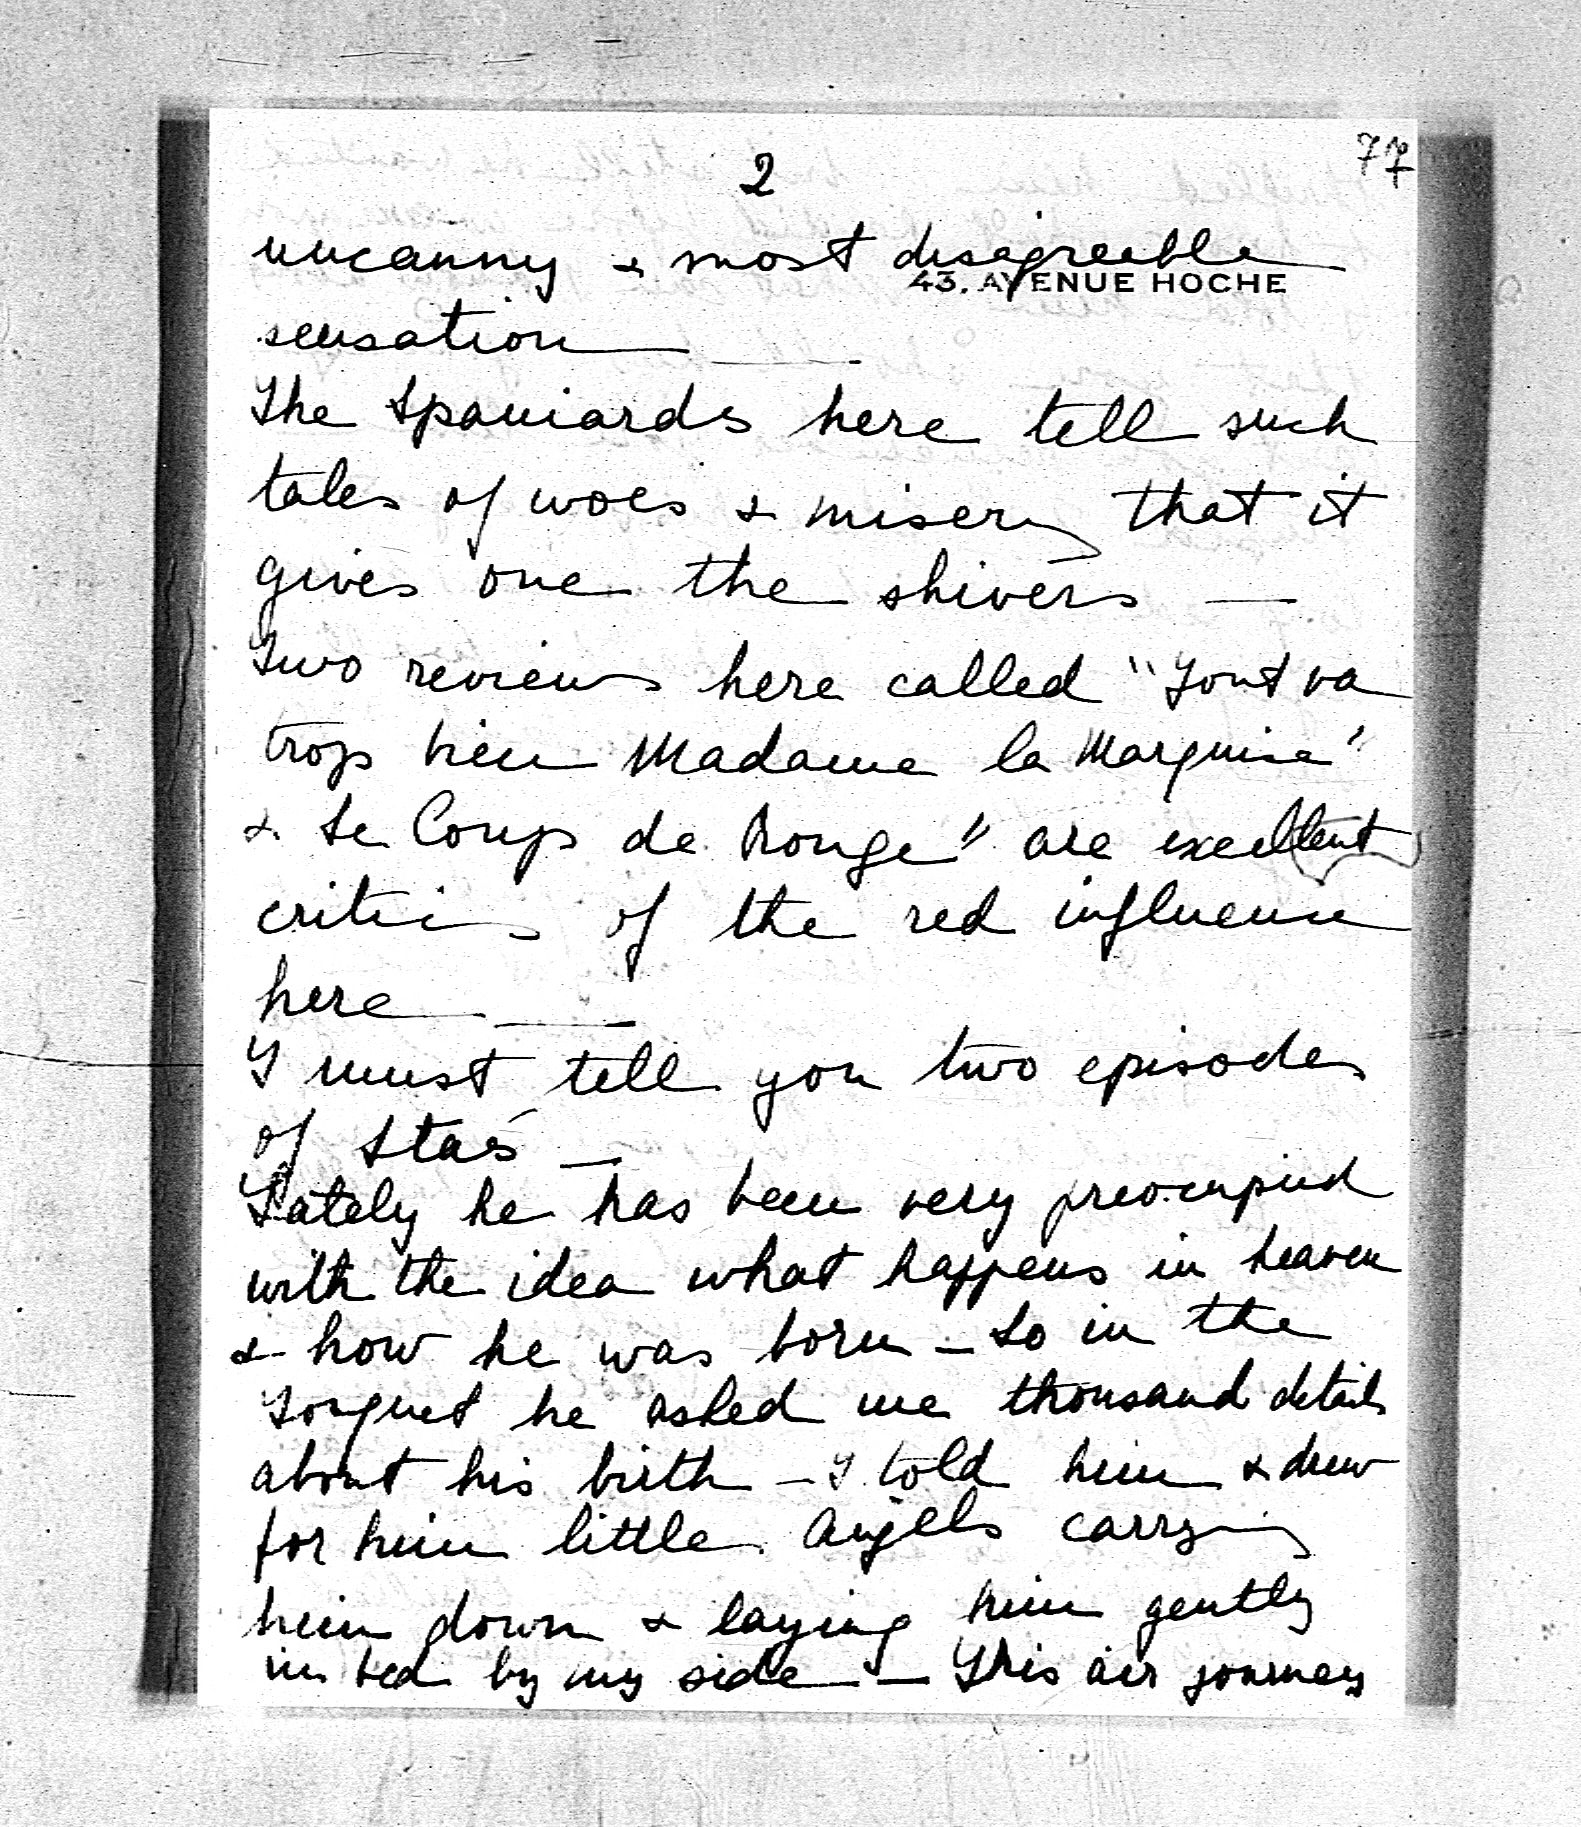 77
2
uncanny & most disagreeble
43. AVENUE HOCHE
sensation —
The Spaniards here tell such
tales of woes & misery that it
gives one the shivers —
Two reviews here called "Tout va
trop bien Madame la Marquise"
& Le Coup de Rouge" are excellent
critics of the red influence
here —
I must tell you two episodes
of Stas —
Lately he has been very preoccupied
with the idea what happens in heaven
& how he was born — So in the
he asked me thousand details
about his birth — I told him & drew
for him little angels carrying
him down & laying him gently
in bed by my side — This air journey